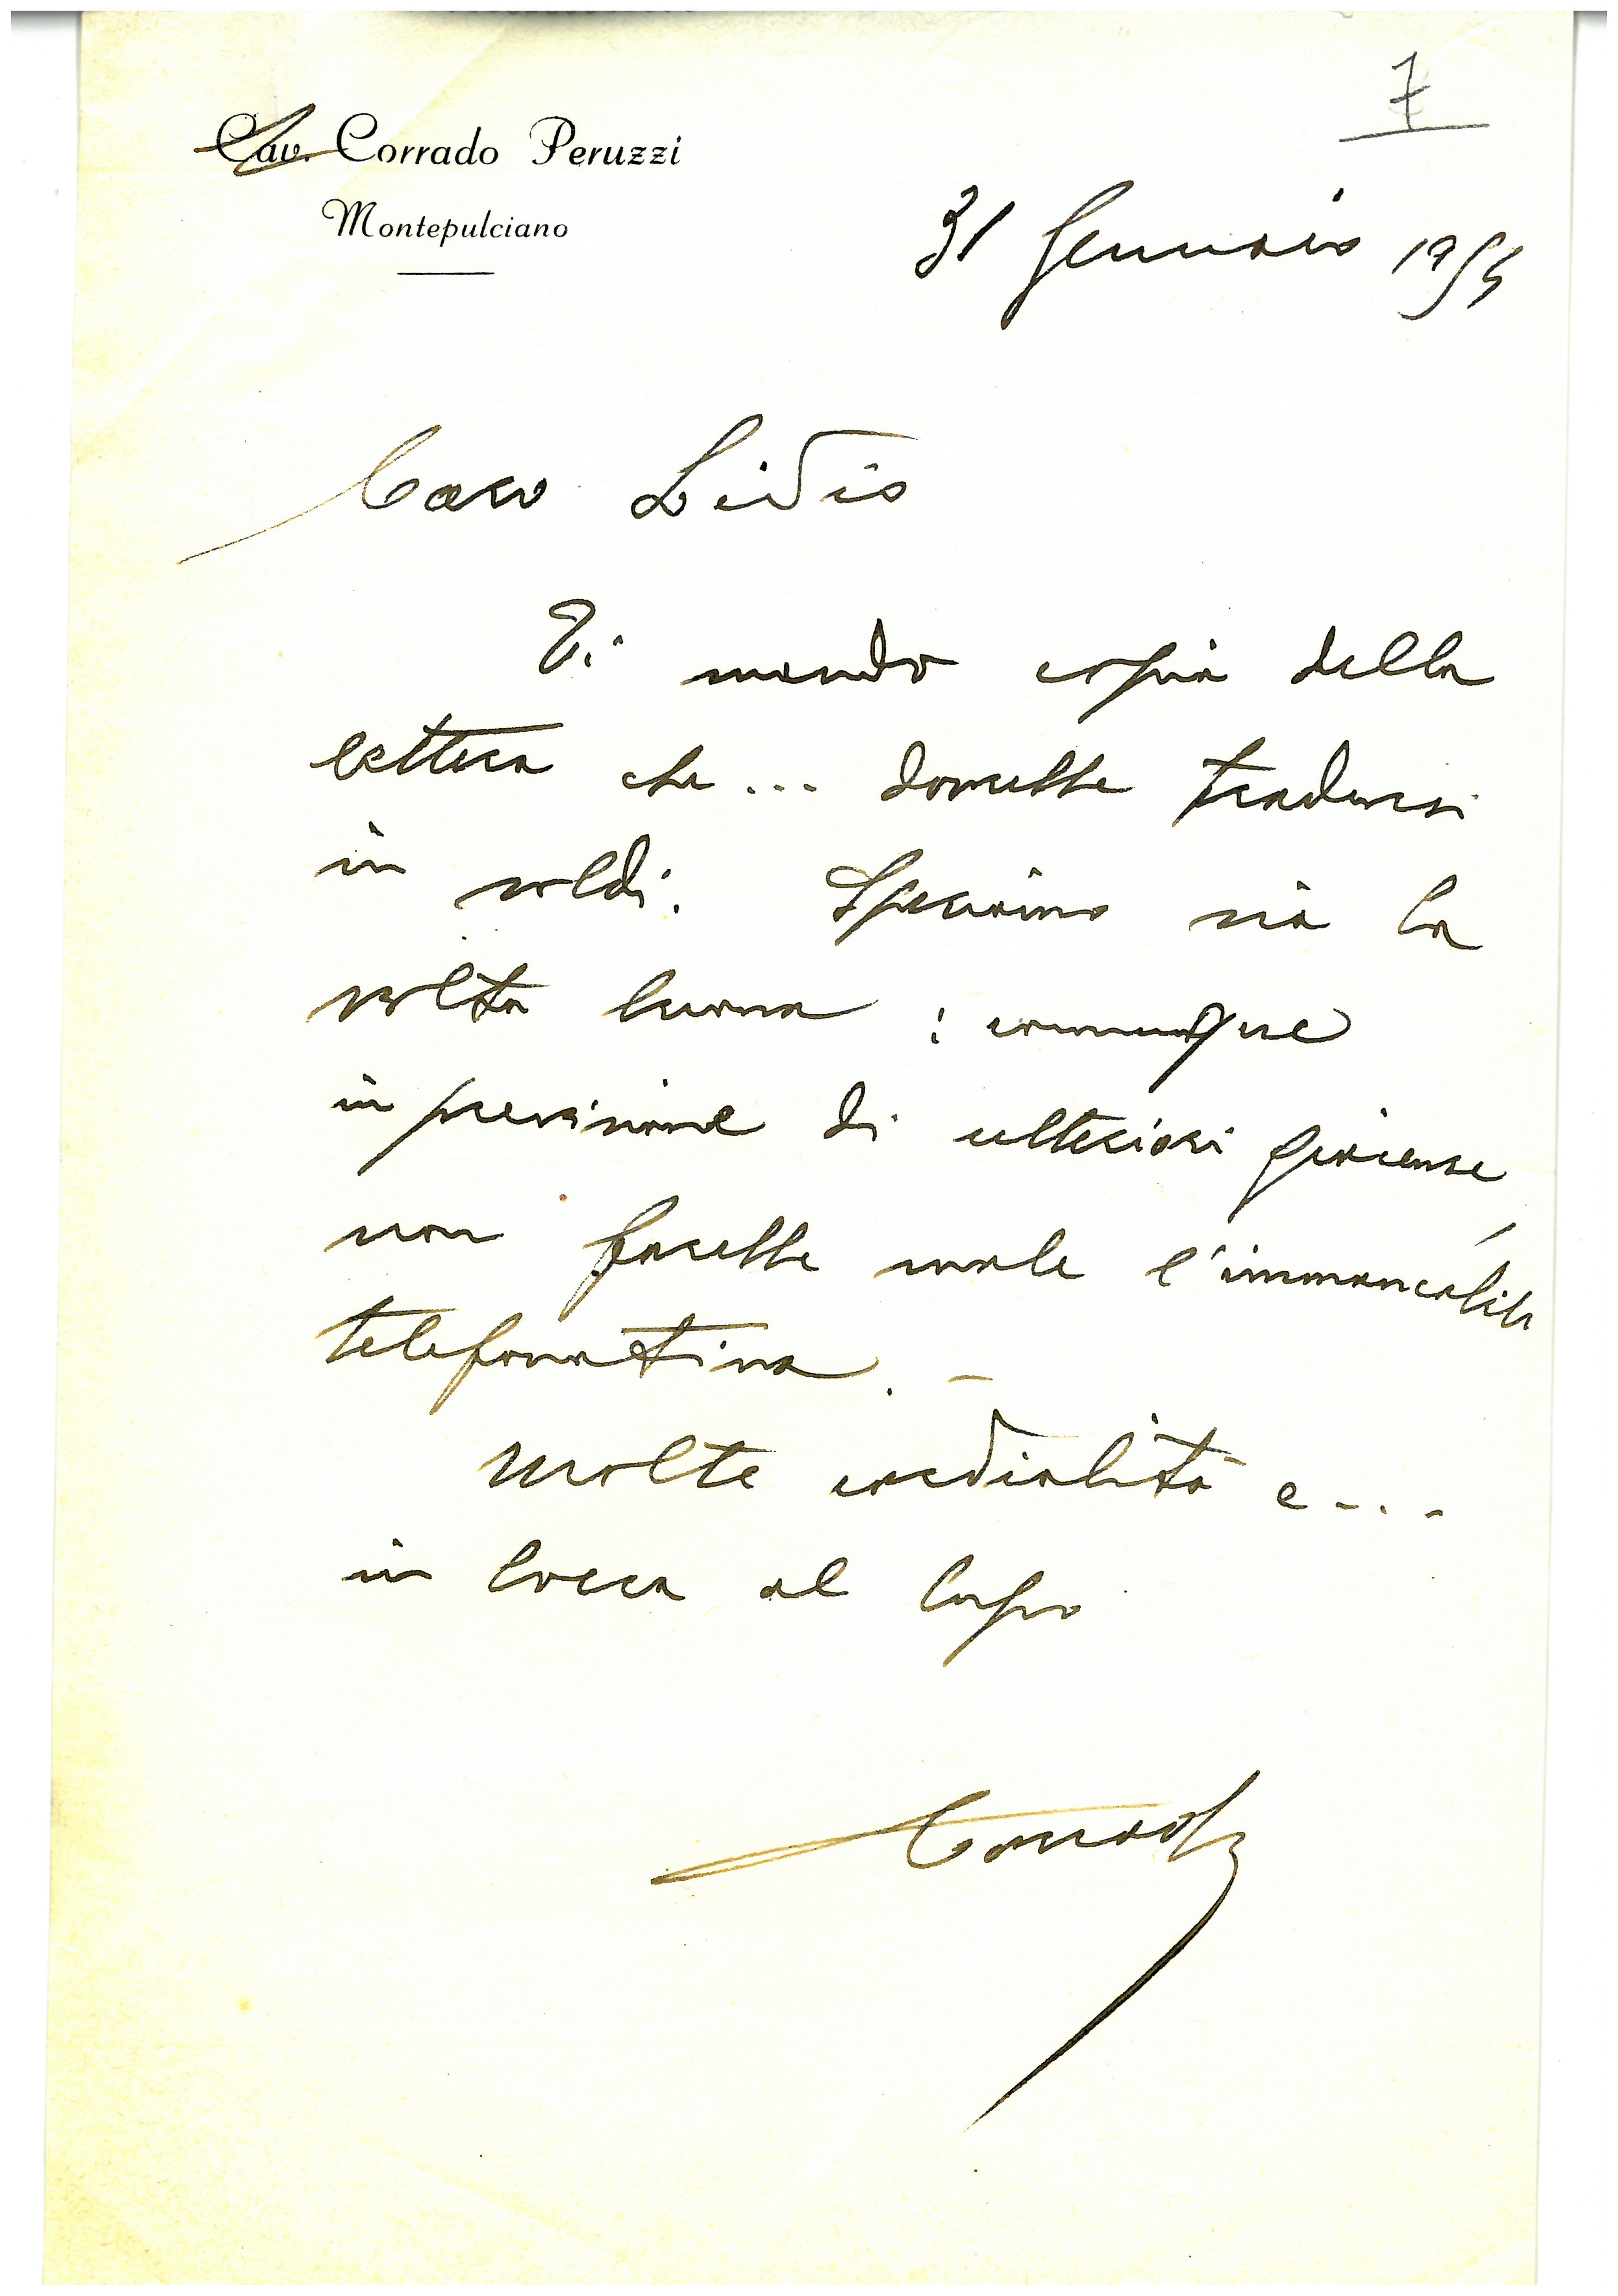 7
Cav. Corrado Peruzzi
Montepulciano
31 Gennaio 1954
Caro Lidio
Ti mando copia della
lettera che ... dovrebbe tradursi
in soldi. Speriamo sia la
volta buona : comunque
in previsione di ulteriori giacenze
non farebbe male l'immancabile
telefonatina. -
Molte cordialità e ...
in bocca al lupo
Corrado